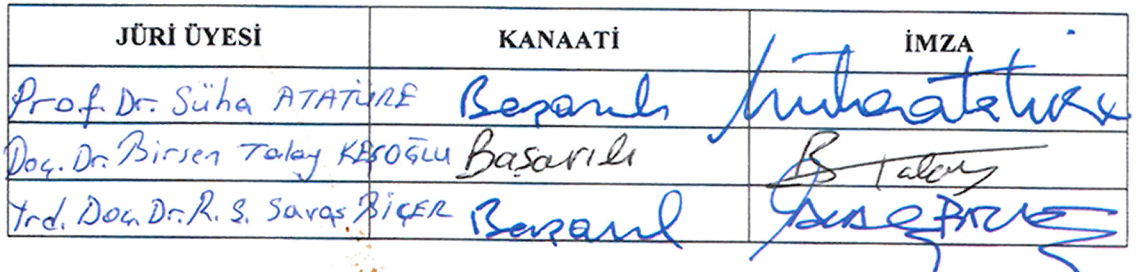 JÜRİ ÜYESİ KANAATİ İMZA
Prof. Dr. Süha ATATÜRE Başarılı Süha Atatüre
Doç. Dr. Birsen Talay KEŞOĞLU Başarılı B Talay
Yrd. Doç. Dr. R. S. Savaş BİÇER Başarılı